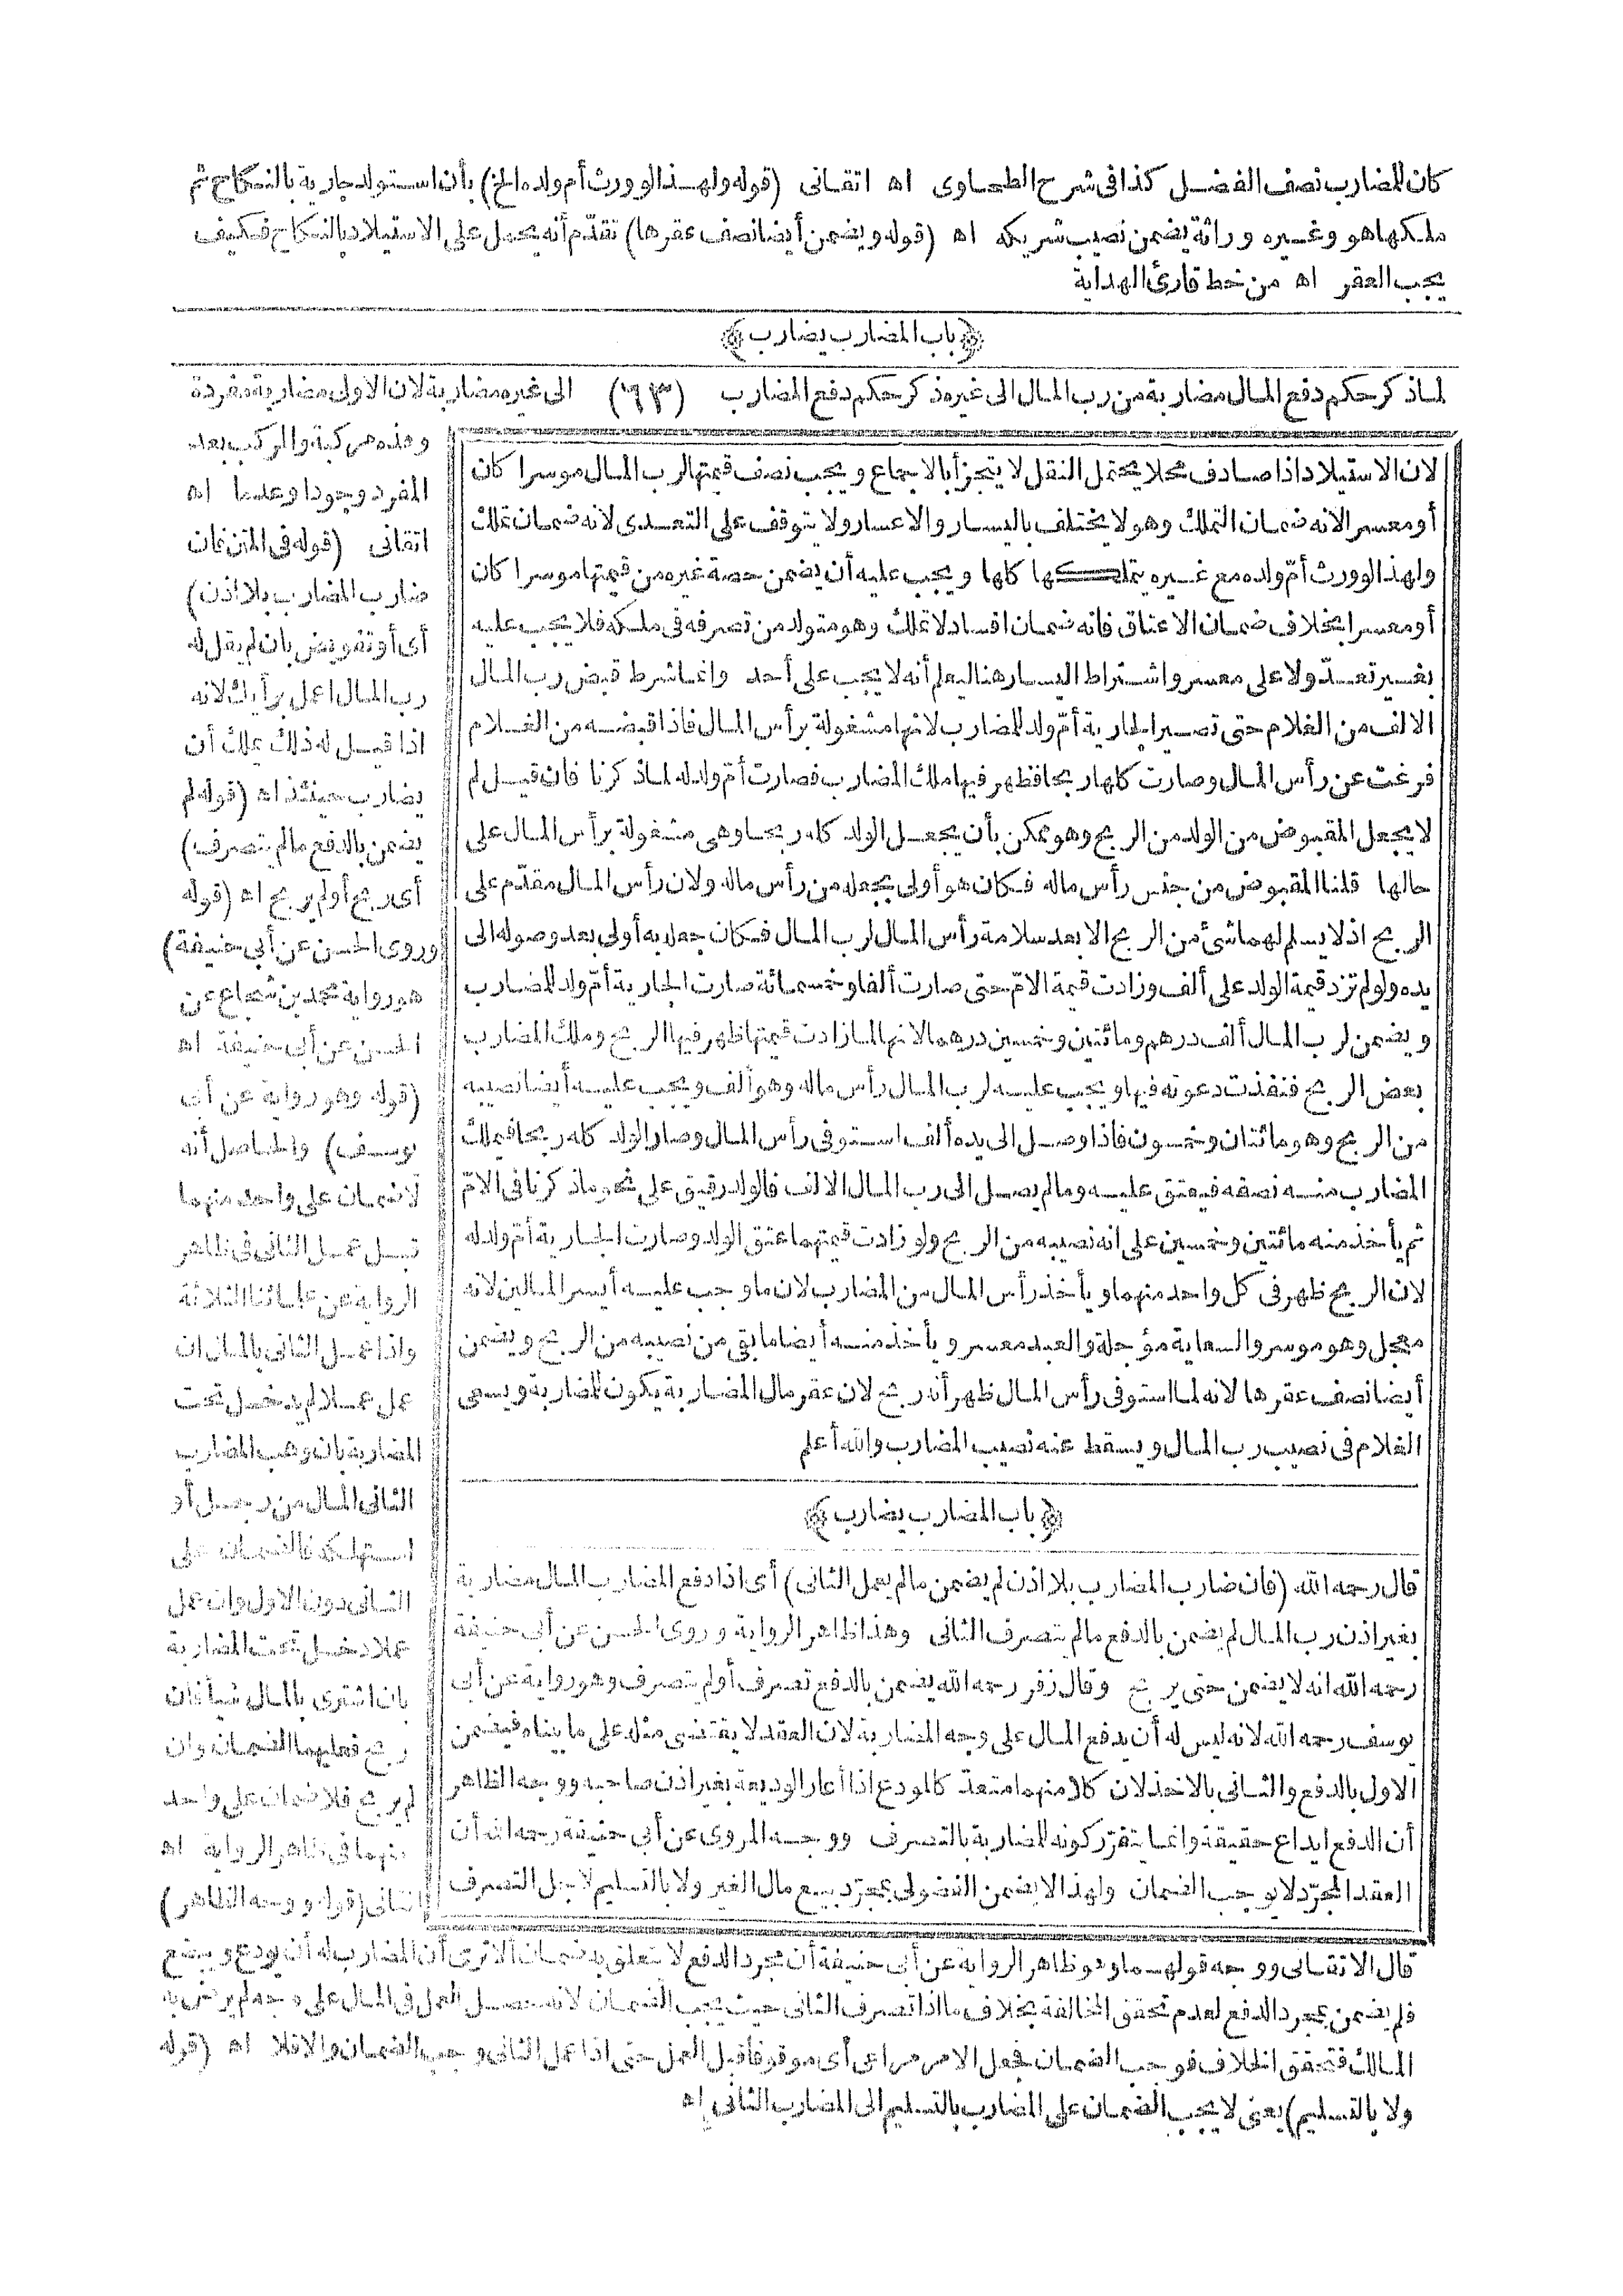 كان للمضارب نصف الفضل كذا فى شرح الطحاوى اه اتقانى (قوله ولهذا لو ورث أم ولده الخ) بأن استولد جارية بالنكاح ثم
ملكها هو وغيره وراثة يضمن نصيب شريكه اه (قوله ويضمن أيضا نصف عقرها) تقدّم أنه يحمل على الاستيلاد بالنكاح فكيف
يجب العقر اه من خط قارئ الهداية
﴿باب المضارب يضارب﴾
لما ذكر حكم دفع المال مضاربة من رب المال الى غيره ذكر حكم دفع المضارب (٦٣) الى غيره مضاربة لان الاولى مضاربة مفردة
وهذه مركبة والمركب بعد
المفرد وجودا وعدما اه
اتقانى (قوله فى المتن فان
ضارب المضارب بلا اذن)
أى أو تفويض بان لم يقل له
رب المال اعمل برأيك لانه
اذا قيل له ذلك يملك أن
يضارب حينئذ اه (قوله لم
يضمن بالدفع ما لم يتصرف)
أى ربح أو لم يربح اه (قوله
وروى الحسن عن أبى حنيفة)
هو رواية محمد بن شجاع عن
الحسن عن أبى حنيفة اه
(قوله وهو رواية عن أبى
يوسف) والحاصل أنه
لا ضمان على واحد منهما
قبل عمل الثانى فى ظاهر
الرواية عن علمائنا الثلاثة
واذا عمل الثانى بالمال ان
عمل عملا لم يدخل تحت
المضاربة بان وهب المضارب
الثانى المال من رجل أو
استهلكه فالضمان على
الثانى دون الاول وان عمل
عملا دخل تحت المضاربة
بان اشترى بالمال شيأ فان
ربح فعليهما الضمان وان
لم يربح فلا ضمان على واحد
منهما فى ظاهر الرواية اه
اتقانى (قوله ووجه الظاهر)
لان الاستيلاد اذا صادف محلا يحتمل النقل لا يتجزأ بالاجماع ويجب نصف قيمتها لرب المال موسرا كان
أو معسرا لانه ضمان التملك وهو لا يختلف باليسار والاعسار ولا يتوقف على التعدى لانه ضمان تملك
ولهذا لو ورث أمّ ولده مع غيره يتملكها كلها ويجب عليه أن يضمن حصة غيره من قيمتها موسرا كان
أو معسرا بخلاف ضمان الاعتاق فانه ضمان افساد لا تملك وهو متولد من تصرفه فى ملكه فلا يجب عليه
بغير تعدّ ولا على معسر واشتراط اليسار هنا ليعلم أنه لا يجب على أحد وانما شرط قبض رب المال
الالف من الغلام حتى تصير الجارية أمّ ولد للمضارب لانها مشغولة برأس المال فاذا قبضه من الغلام
فرغت عن رأس المال وصارت كلها ربحا فظهر فيها ملك المضارب فصارت أمّ ولد له لما ذكرنا فان قيل لم
لا يجعل المقبوض من الولد من الربح وهو ممكن بأن يجعل الولد كله ربحا وهى مشغولة برأس المال على
حالها قلنا المقبوض من جنس رأس ماله فكان هو أولى بجعله من رأس ماله ولان رأس المال مقدّم على
الربح اذ لا يسلم لهما شئ من الربح الا بعد سلامة رأس المال لرب المال فكان جعله به أولى بعد وصوله الى
يده ولو لم تزد قيمة الولد على ألف وزادت قيمة الامّ حتى صارت ألفا وخمسمائة صارت الجارية أمّ ولد للمضارب
ويضمن لرب المال ألف درهم ومائتين وخمسين درهما لانها لما زادت قيمتها ظهر فيها الربح وملك المضارب
بعض الربح فنفذت دعوته فيها ويجب عليه لرب المال رأس ماله وهو ألف ويجب عليه أيضا نصيبه
من الربح وهو مائتان وخمسون فاذا وصل الى يده ألف استوفى رأس المال وصار الولد كله ربحا فيملك
المضارب منه نصفه فيعتق عليه وما لم يصل الى رب المال الالف فالولد رقيق على نحو ما ذكرنا فى الامّ
ثم يأخذ منه مائتين وخمسين على انه نصيبه من الربح ولو زادت قيمتهما عتق الولد وصارت الجارية أمّ ولد له
لان الربح ظهر فى كل واحد منهما ويأخذ رأس المال من المضارب لان ما وجب عليه أيسر المالين لانه
معجل وهو موسر والسعاية مؤجلة والعبد معسر ويأخذ منه أيضا ما بقى من نصيبه من الربح ويضمن
أيضا نصف عقرها لانه لما استوفى رأس المال ظهر أنه ربح لان عقر مال المضاربة يكون للمضاربة ويسعى
الغلام فى نصيب رب المال ويسقط عنه نصيب المضارب والله أعلم
﴿باب المضارب يضارب﴾
قال رحمه الله (فان ضارب المضارب بلا اذن لم يضمن ما لم يعمل الثانى) أى اذا دفع المضارب المال مضاربة
بغير اذن رب المال لم يضمن بالدفع ما لم يتصرف الثانى وهذا ظاهر الرواية وروى الحسن عن أبى حنيفة
رحمه الله انه لا يضمن حتى يربح وقال زفر رحمه الله يضمن بالدفع تصرف أو لم يتصرف وهو رواية عن أبى
يوسف رحمه الله لانه ليس له أن يدفع المال على وجه المضاربة لان العقد لا يقتضى مثله على ما بيناه فيضمن
الاول بالدفع والثانى بالاخذ لان كلا منهما متعدّ كالمودع اذا أعار الوديعة بغير اذن صاحبه ووجه الظاهر
أن الدفع ايداع حقيقة وانما يتقرّر كونه للمضاربة بالتصرف ووجه المروى عن أبى حنيفة رحمه الله أن
العقد المجرّد لا يوجب الضمان ولهذا لا يضمن الفضولى بمجرّد بيع مال الغير ولا بالتسليم لاجل التصرف
قال الاتقانى ووجه قولهما وهو ظاهر الرواية عن أبى حنيفة أن مجرد الدفع لا يتعلق به ضمان ألا ترى أن المضارب له أن يودع ويبضع
فلم يضمن بمجرد الدفع لعدم تحقق المخالفة بخلاف ما اذا تصرف الثانى حيث يجب الضمان لانه حصل العمل فى المال على وجه لم يرض به
المالك فتحقق الخلاف فوجب الضمان فجعل الامر مراعى أى موقوفا قبل العمل حتى اذا عمل الثانى وجب الضمان والا فلا اه (قوله
ولا بالتسليم) يعنى لا يجب الضمان على المضارب بالتسليم الى المضارب الثانى اه